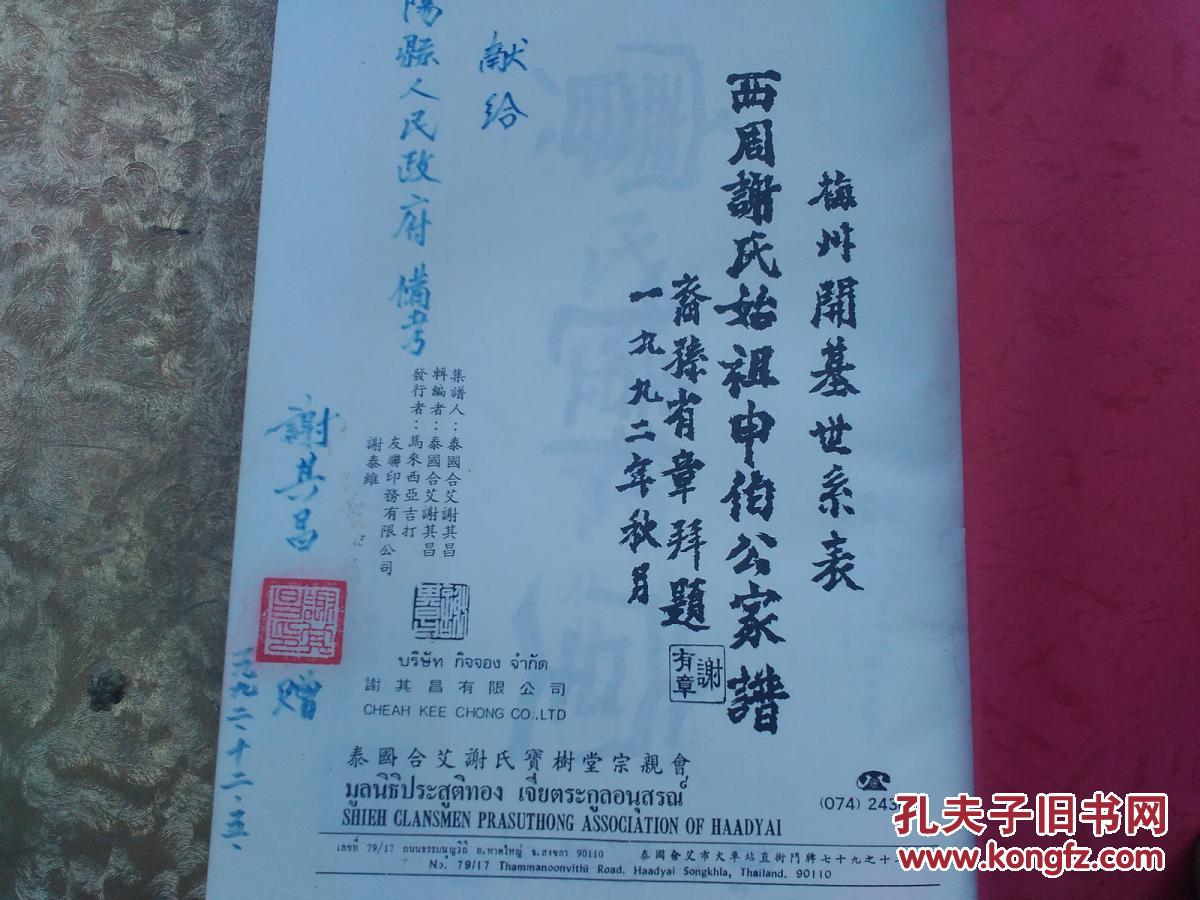 梅州開基世系表
西周謝氏始祖申伯公家譜
裔孫有章拜題
一九九二年秋月
謝有章
献给
陽縣人民政府備考
集譜人：泰國合艾謝其昌
輯編者：泰國合艾謝其昌
發行者：馬來西亞吉打
友聯印務有限公司
謝泰維
謝其昌
赠
一九九二·十二·五·
บริษัท กิจจอง จำกัด
謝其昌有限公司
CHEAH KEE CHONG CO.,LTD
泰國合艾謝氏寶樹堂宗親會
มูลนิธิประสูติทอง เจี่ยตระกูลอนุสรณ์
SHIEH CLANSMEN PRASUTHONG ASSOCIATION OF HAADYAI
(074) 243
เลขที่ 79/17 ถนนธรรมนูญวิถี อ.หาดใหญ่ จ.สงขลา 90110
泰國會艾市大車站直街門牌七十九之十
No. 79/17 Thammanoonvithi Road. Haadyai Songkhla, Thailand. 90110
孔夫子旧书网
www.kongfz.com